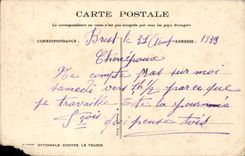 CARTE POSTALE
La correspondance au recto n'est pas acceptée par tous les pays étrangers
CORRESPONDANCE Brest le 31 Août ADRESSE 1939
Chéri
Ne compte pas sur moi
samedi vers parce que
je travaille toute la journée
qui pense
NATIONALE CONTRE LE TAUDIS